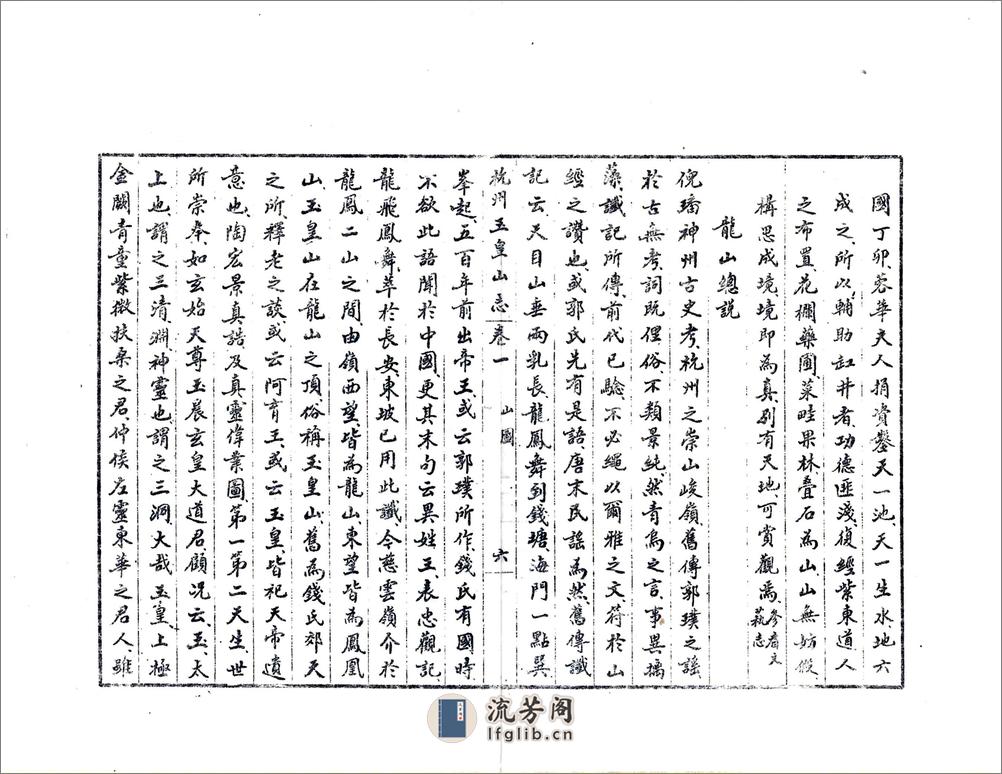 國丁卯蓉華夫人捐資鑿天一池、天一生水地六
成之、所以輔助缸井者、功德匪淺、復經紫東道人
之布置、花棚藥圃、菜畦果林、叠石為山、山無妨假、
構思成境、境即為真、别有天地、可賞觀焉、參看文
蓺志
龍山總説
倪璠神州古史考、杭州之崇山峻嶺、舊傳郭璞之謡、
於古無考、詞既俚俗、不類景純、然青烏之言、事異摛
藻、讖記所傳、前代已驗、不必繩以爾雅之文、符於山
經之讚也、或郭氏先有是語、唐末民謡為然、舊傳讖
記云、天目山垂兩乳長、龍鳳舞到錢塘、海門一點巽
杭州玉皇山志 卷一 山圖 六
峯起、五百年前出帝王、或云郭璞所作、錢氏有國時、
不欲此語聞於中國、更其末句云異姓王、表忠觀記
龍飛鳳舞、萃於長安、東坡已用此讖、今慈雲嶺介於
龍鳳二山之間、由嶺西望、皆為龍山、東望皆為鳳凰
山、玉皇山在龍山之頂、俗稱玉皇山、舊為錢氏郊天
之所、釋老之談、或云阿育王、或云玉皇、皆祀天帝遺
意也、陶宏景真誥、及真靈偉業圖、第一第二天生、世
所崇奉、如玄始天尊、玉晨玄皇大道君、顧况云、玉太
上也、謂之三清淵神靈也、謂之三洞、大哉玉皇、上極
金闕青童、紫微扶桑之君、仲侯左靈東華之君、人雖
流芳阁
lfglib.cn